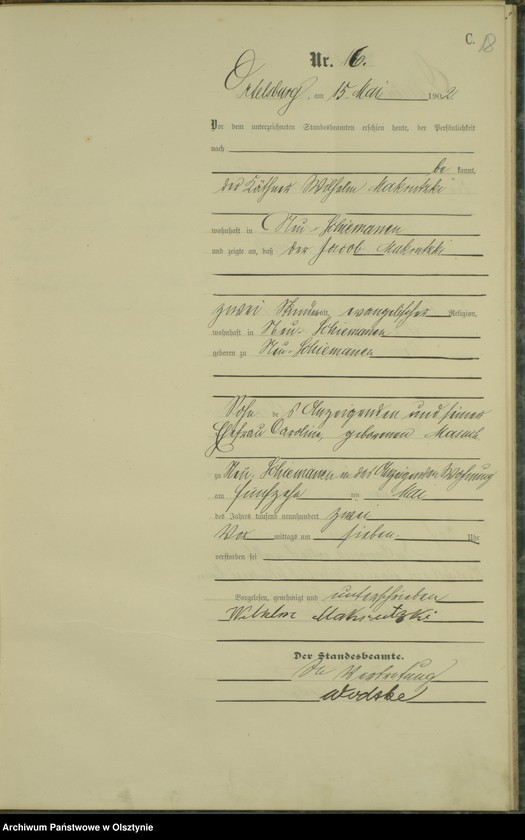 C. 18
Nr. 16.
Ortelsburg, am 15. Mai 1902
Vor dem unterzeichneten Standesbeamten erschien heute, der Persönlichkeit
nach
bekannt,
der Käthner Wilhelm
wohnhaft in Neu-Schiemanen
und zeigte an, daß der Jacob
zwei Stunden alt, evangelischer Religion,
wohnhaft in Neu-Schiemanen
geboren zu Neu-Schiemanen
Sohn des Anzeigenden und seiner
Ehefrau Caroline, geborenen
zu Neu-Schiemanen in des Anzeigenden Wohnung
am fünfzehn ten Mai
des Jahrs tausend neunhundert zwei
Vor mittags um sieben Uhr
verstorben sei
Vorgelesen, genehmigt und unterschrieben
Wilhelm
Der Standesbeamte.
In Vertretung
Archiwum Państwowe w Olsztynie